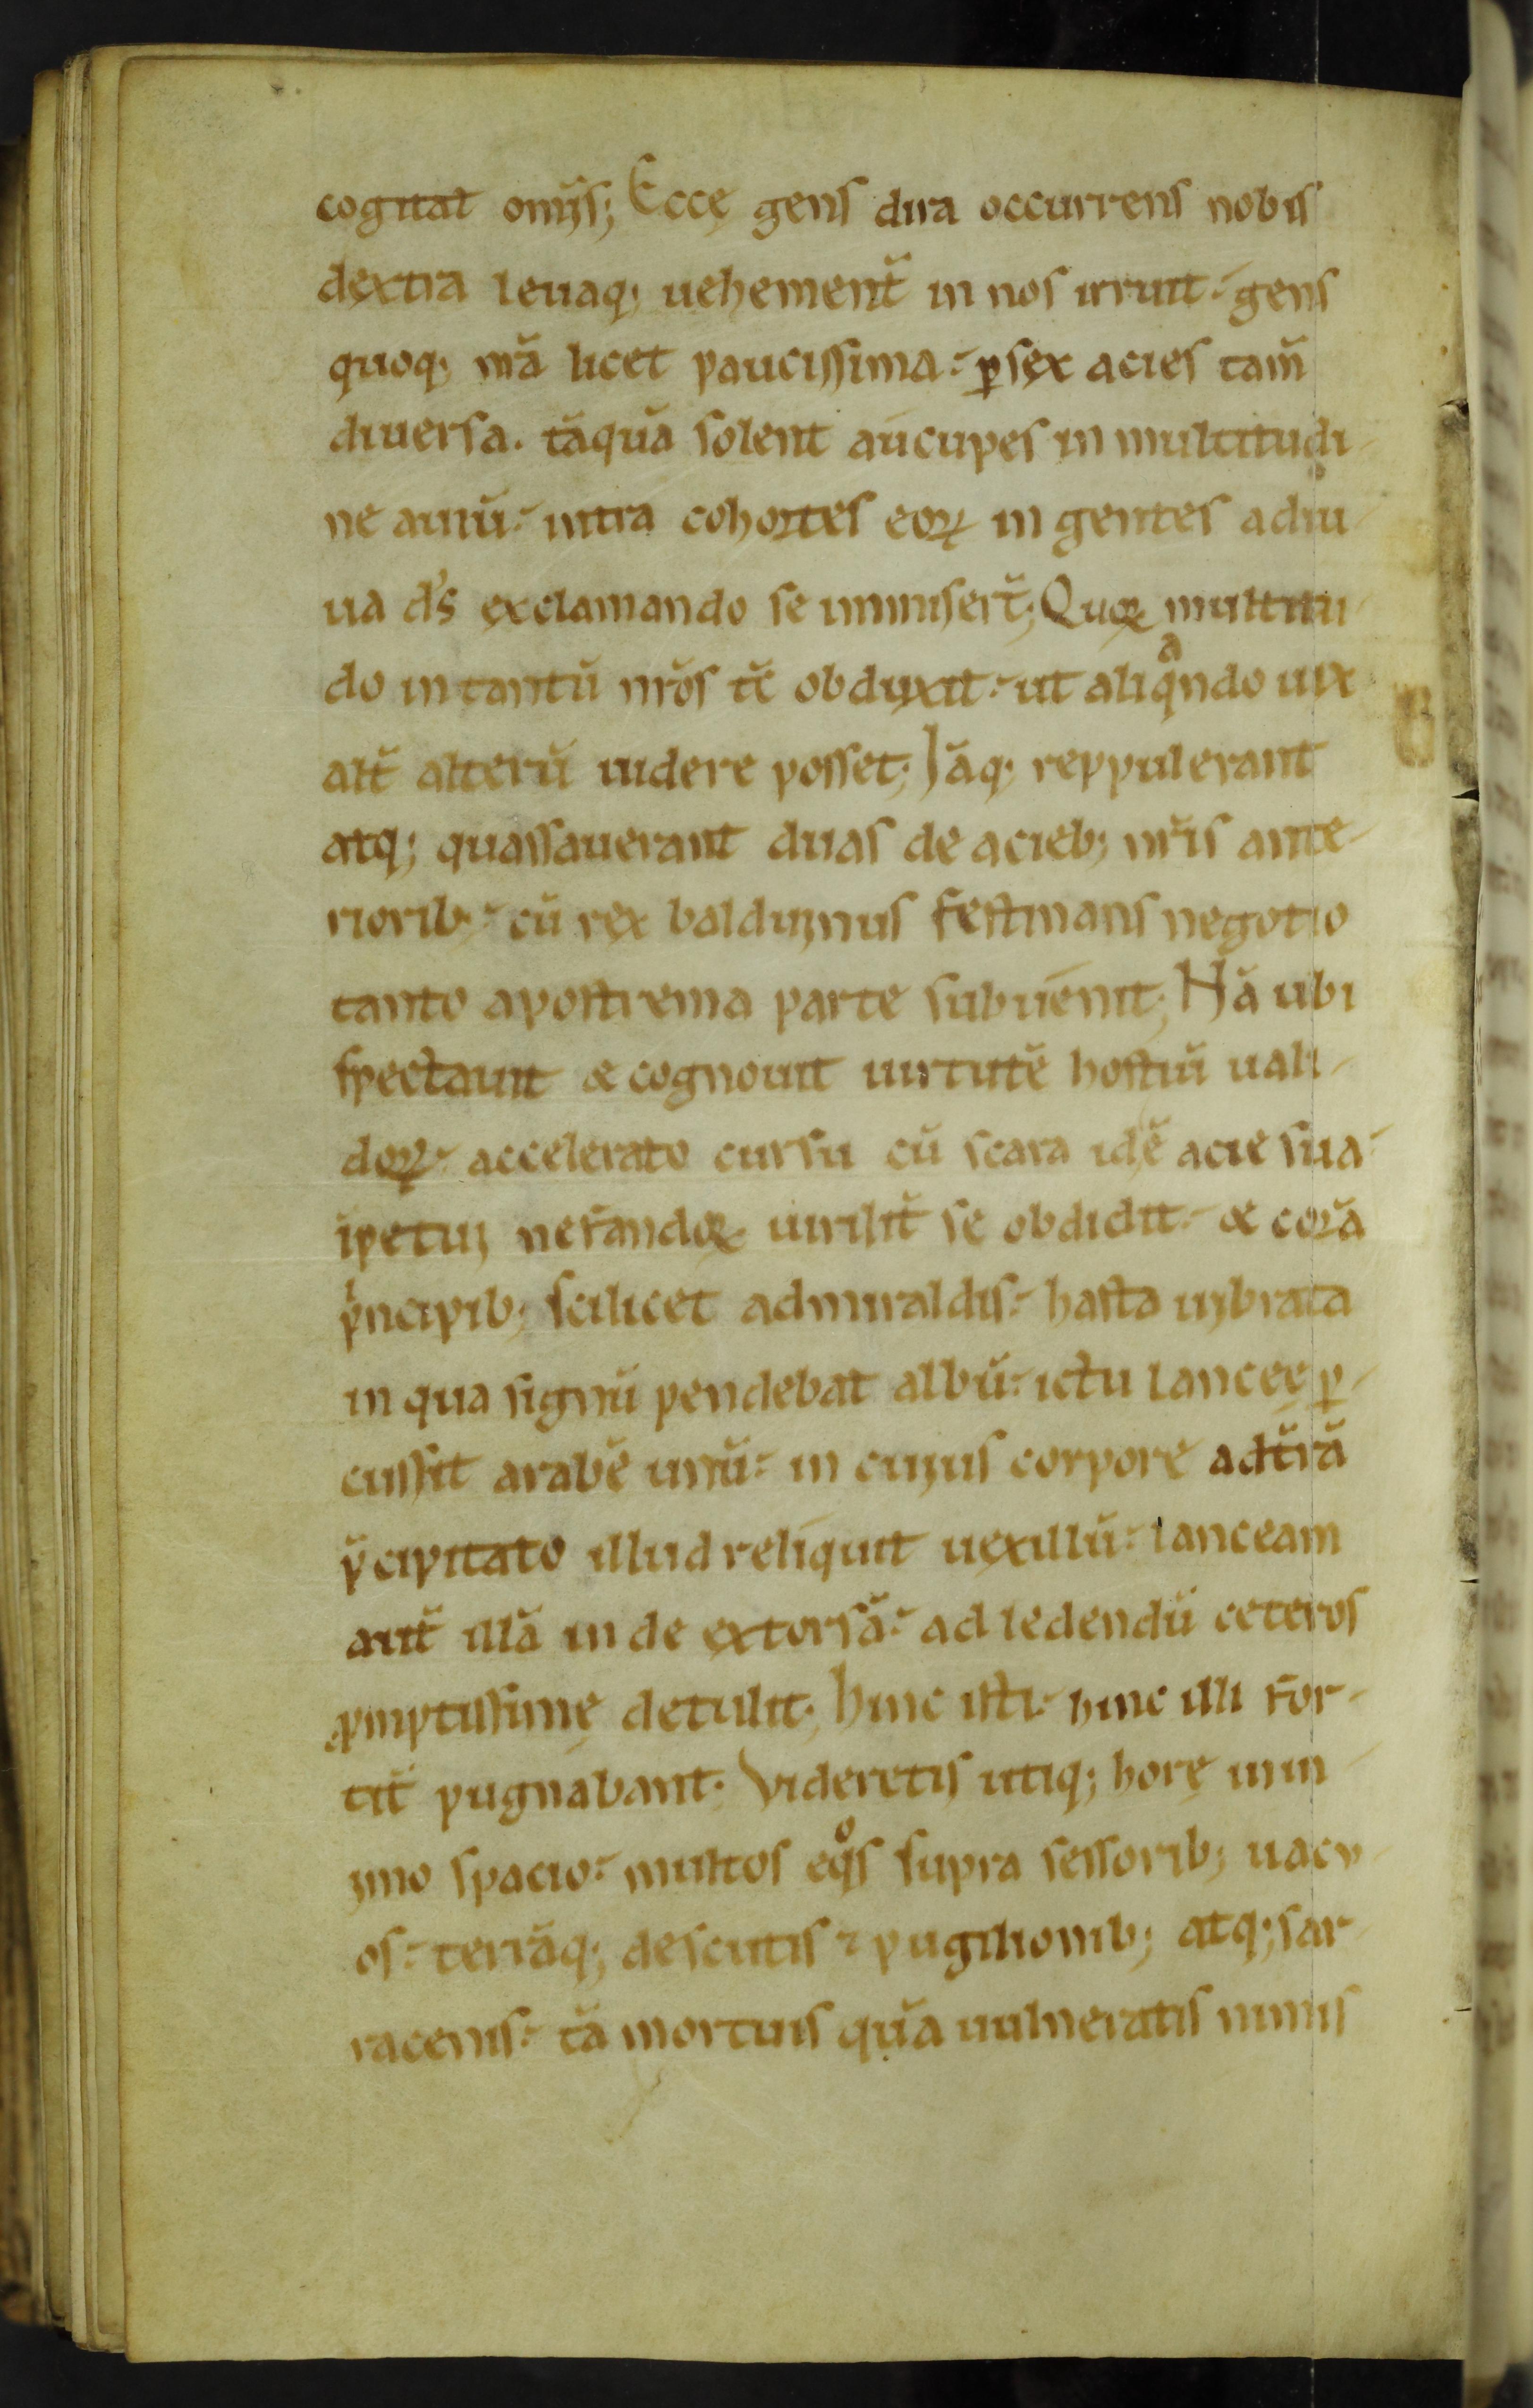 cogitat om̄ijs; Eccę gens dira occurrens nobis
dextra leuaq; uehement̄ in nos irruit. gens
quoq; nr̄a licet paucissima. ꝑ sex acies tam̄
diuersa. tāquā solent aucupes in multitudi-
ne auiū. intra cohortes eoꝝ in gentes adiu-
ua d̄s exclamando se immisert̄; Quoꝝ multitu-
do in tantū nr̄os tē obduxit. ut aliqͣndo uix
alt̄ alterū uidere posset; Iāq; reppulerant
atq; quassauerant duas de acieb; nr̄is ante-
riorib; cū rex balduinus festinans negotio
tanto a postrema parte subuenit; Nā ubi
spectauit & cognouit uirtutē hostiū uali-
doꝝ. accelerato cursu cū scara idē acie sua
īpetui nefandoꝝ uirilit̄ se obdidit. & corā
pͥncipib; scilicet admiraldis. hasta uibrata
in qua signū pendebat albū. ictu lanceę ꝑ-
cussit arabē unū. in cuius corpore ad t̄rā
p̄cipitato illud reliquit uexillū. lanceam
aut̄ illā inde extorsā. ad ledendū ceteros
ꝓmptissimę detulit; hinc isti. hinc illi for-
tit̄ pugnabant. Videretis utiq; horę in in-
imo spacio. multos eqͦs supra sessorib; uacu-
os. terrāq; de scutis ⁊ pugilionib; atq; sar-
racenis. tā mortuis quā uulneratis nimis